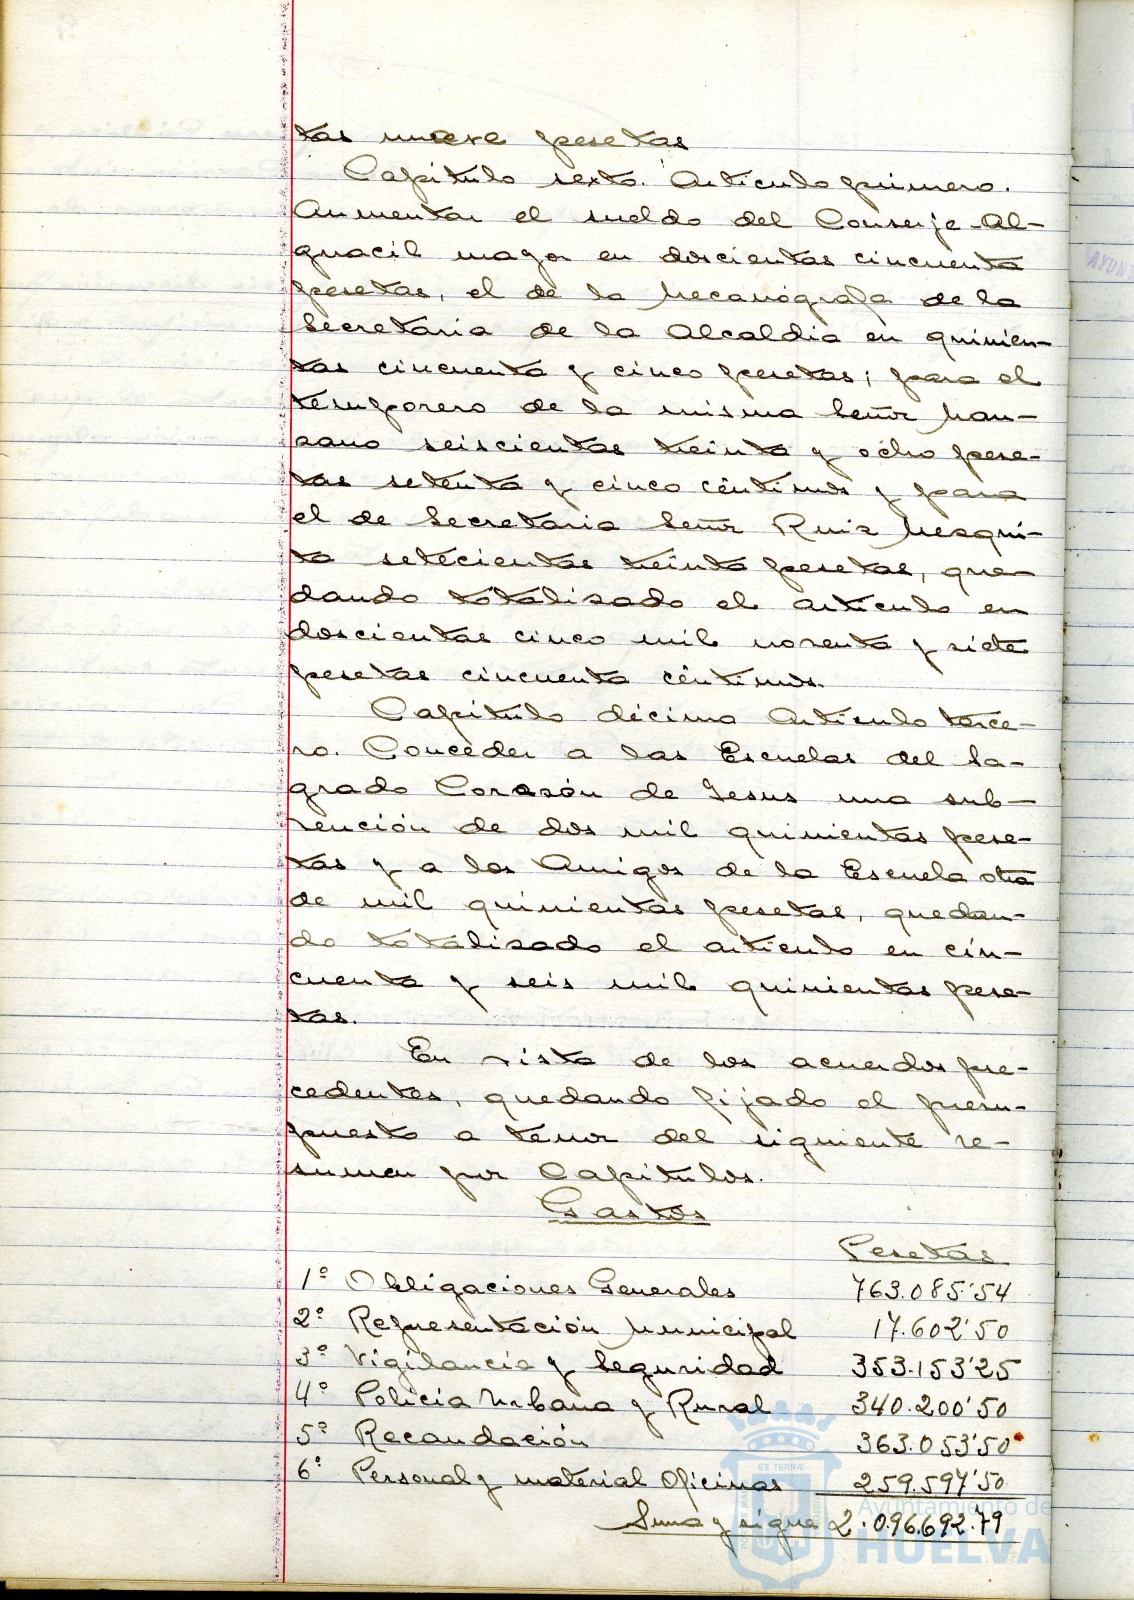 tas nueve pesetas
Capítulo sexto. Artículo primero.
Aumentar el sueldo del Conserje-Al-
guacil mayor en doscientas cincuenta
pesetas, el de la Mecanógrafa de la
Secretaria de la Alcaldia en quinien-
tas cincuenta y cinco pesetas; para el
temporero de la misma Señor Man-
zano seiscientas treinta y ocho pese-
tas setenta y cinco céntimos y para
el de Secretaria Señor Ruiz Mezqui-
ta setecientas treinta pesetas, que-
dando totalizado el artículo en
doscientas cinco mil noventa y siete
pesetas cincuenta céntimos.
Capítulo décimo Artículo terce-
ro. Conceder a las Escuelas del Sa-
grado Corazón de Jesus una sub-
vención de dos mil quinientas pese-
tas y a los Amigos de la Escuela otra
de mil quinientas pesetas, quedan-
do totalizado el artículo en cin-
cuenta y seis mil quinientas pese-
tas.
En vista de los acuerdos pre-
cedentes, quedando fijado el presu-
puesto a tenor del siguiente re-
sumen por Capítulos.
Gastos
Pesetas
1º Obligaciones Generales 763.085'54
2º Representación Municipal 17.602'50
3º Vigilancia y Seguridad 353.153'25
4º Policía Urbana y Rural 340.200'50
5º Recaudación 363.053'50
6º Personal y material Oficinas 259.597'50
Suma y sigue 2.096.692.79
AYUNT
ET TERRÆ
Ayuntamiento de
HUELVA